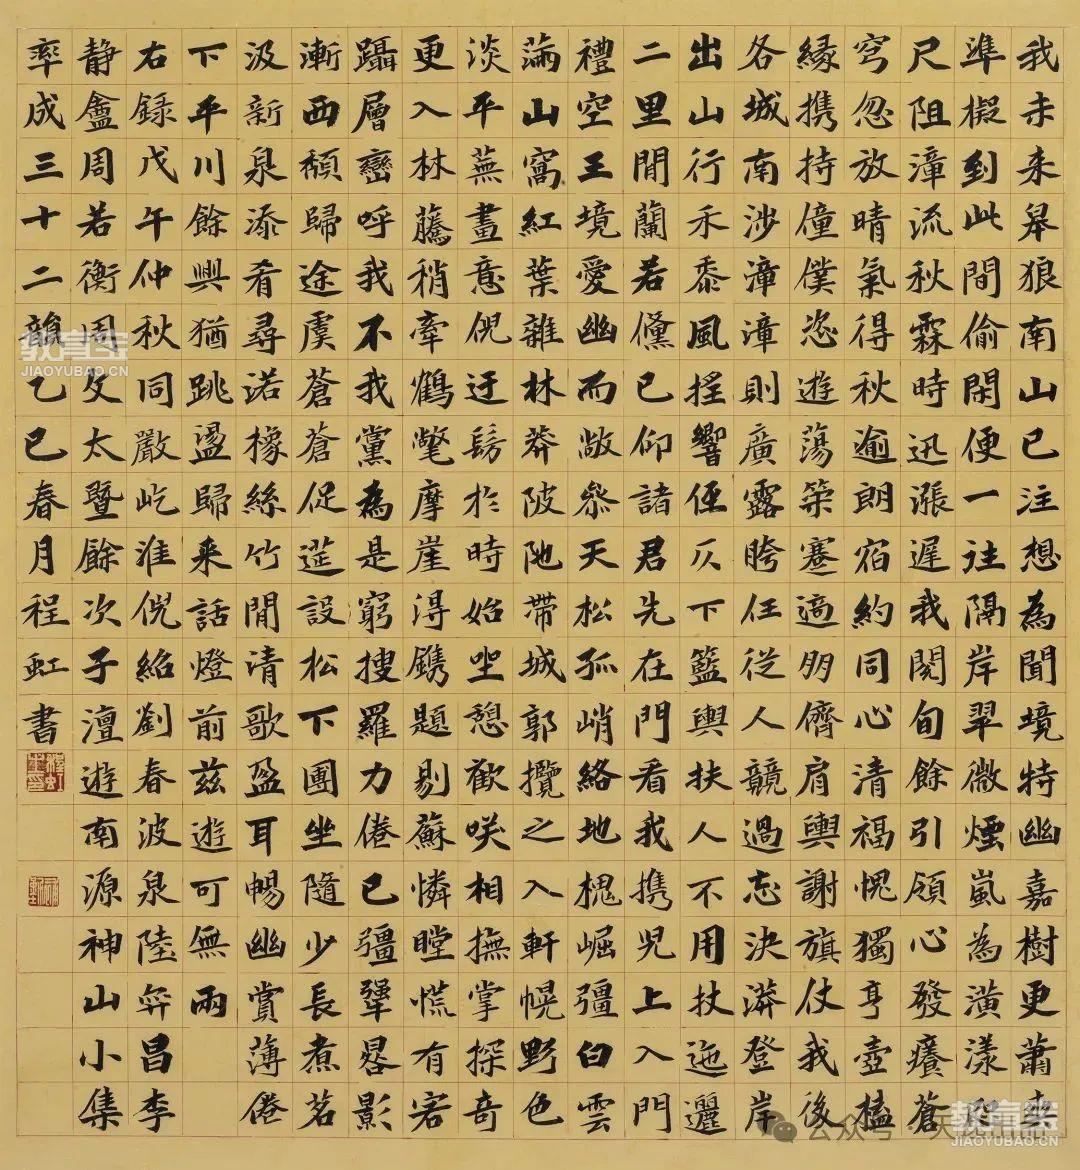 我未来皋狼南山已注想為聞境特幽嘉樹更蕭爽
準擬到此間偷閑便一往隔岸翠微煙嵐為潢漾起
尺阻漳流秋霖時迅漲遲我閱旬餘引領心發癢蒼
穹忽放晴氣得秋逾朗宿約同心清福愧獨亨壺榼
緣携持僮僕恣遊蕩策蹇適朋儕肩輿謝旗仗我後
各城南涉漳漳則廣露胯任從人競過忘決漭登岸
出山行禾黍風搖響徑仄下籃輿扶人不用扙迤邐
二里間蘭若儻已仰諸君先在門看我携児上入門
禮空王境愛幽而敞叅天松孤峭絡地槐崛彊白雲
滿山窩紅葉雜林莽陂阤帶城郭攬之入軒幌野色
淡平蕪畫意倪迂髣於時始坐憩歡咲相撫掌探奇
更入林藤稍牽鶴氅摩崖淂鐫題剔蘇憐瞠慌有宕
躡層巒呼我不我黨為是窮搜羅力倦已彊犟晷影
漸西頹歸途虞蒼蒼促筵設松下團坐隨少長煮茗
汲新泉添肴尋諾橡絲竹間清歌盈耳暢幽賞薄倦
下平川餘興猶跳盪歸来話燈前茲遊可無兩
右録戊午仲秋同嚴屹淮倪紹劉春波泉陸弈昌李
静盦周若衡周文太暨餘次子澶遊南源神山小集
率成三十二韻乙巳春月程虹書
教育宝
JIAOYUBAO.CN
公众号
教育宝
JIAOYUBAO.CN